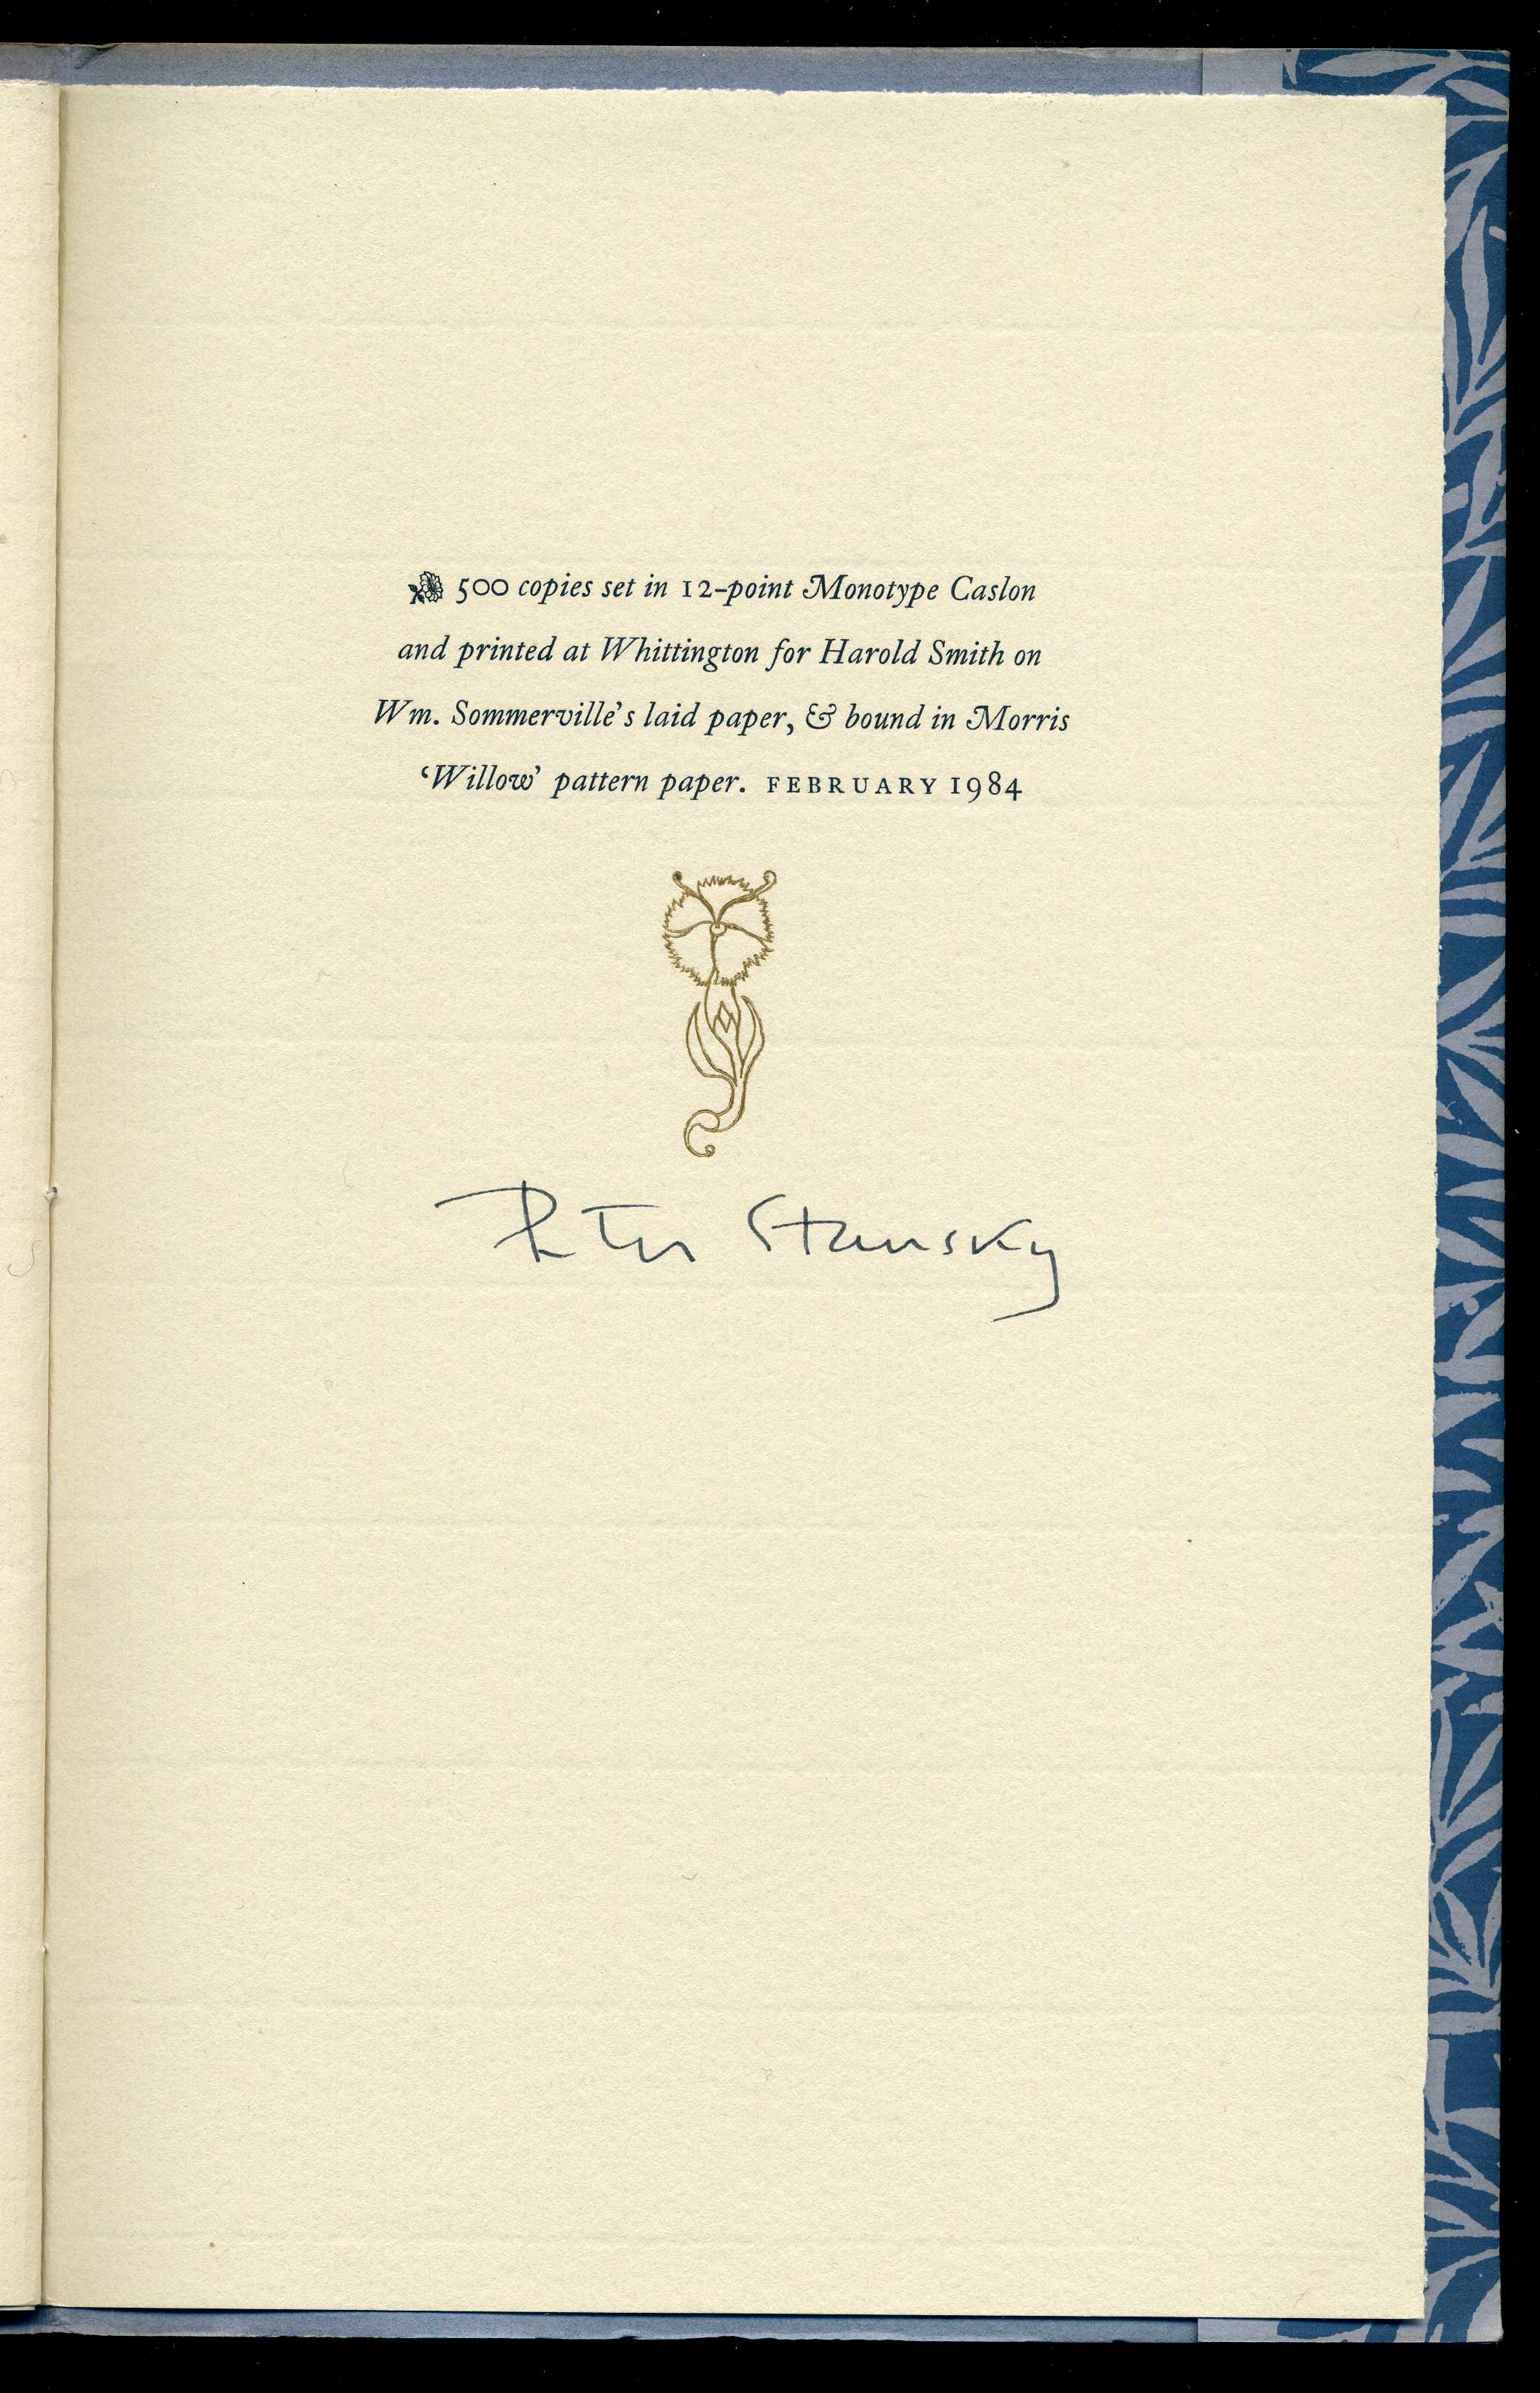 500 copies set in 12-point Monotype Caslon
and printed at Whittington for Harold Smith on
Wm. Sommerville's laid paper, & bound in Morris
‘Willow’ pattern paper. FEBRUARY 1984
Peter Stansky